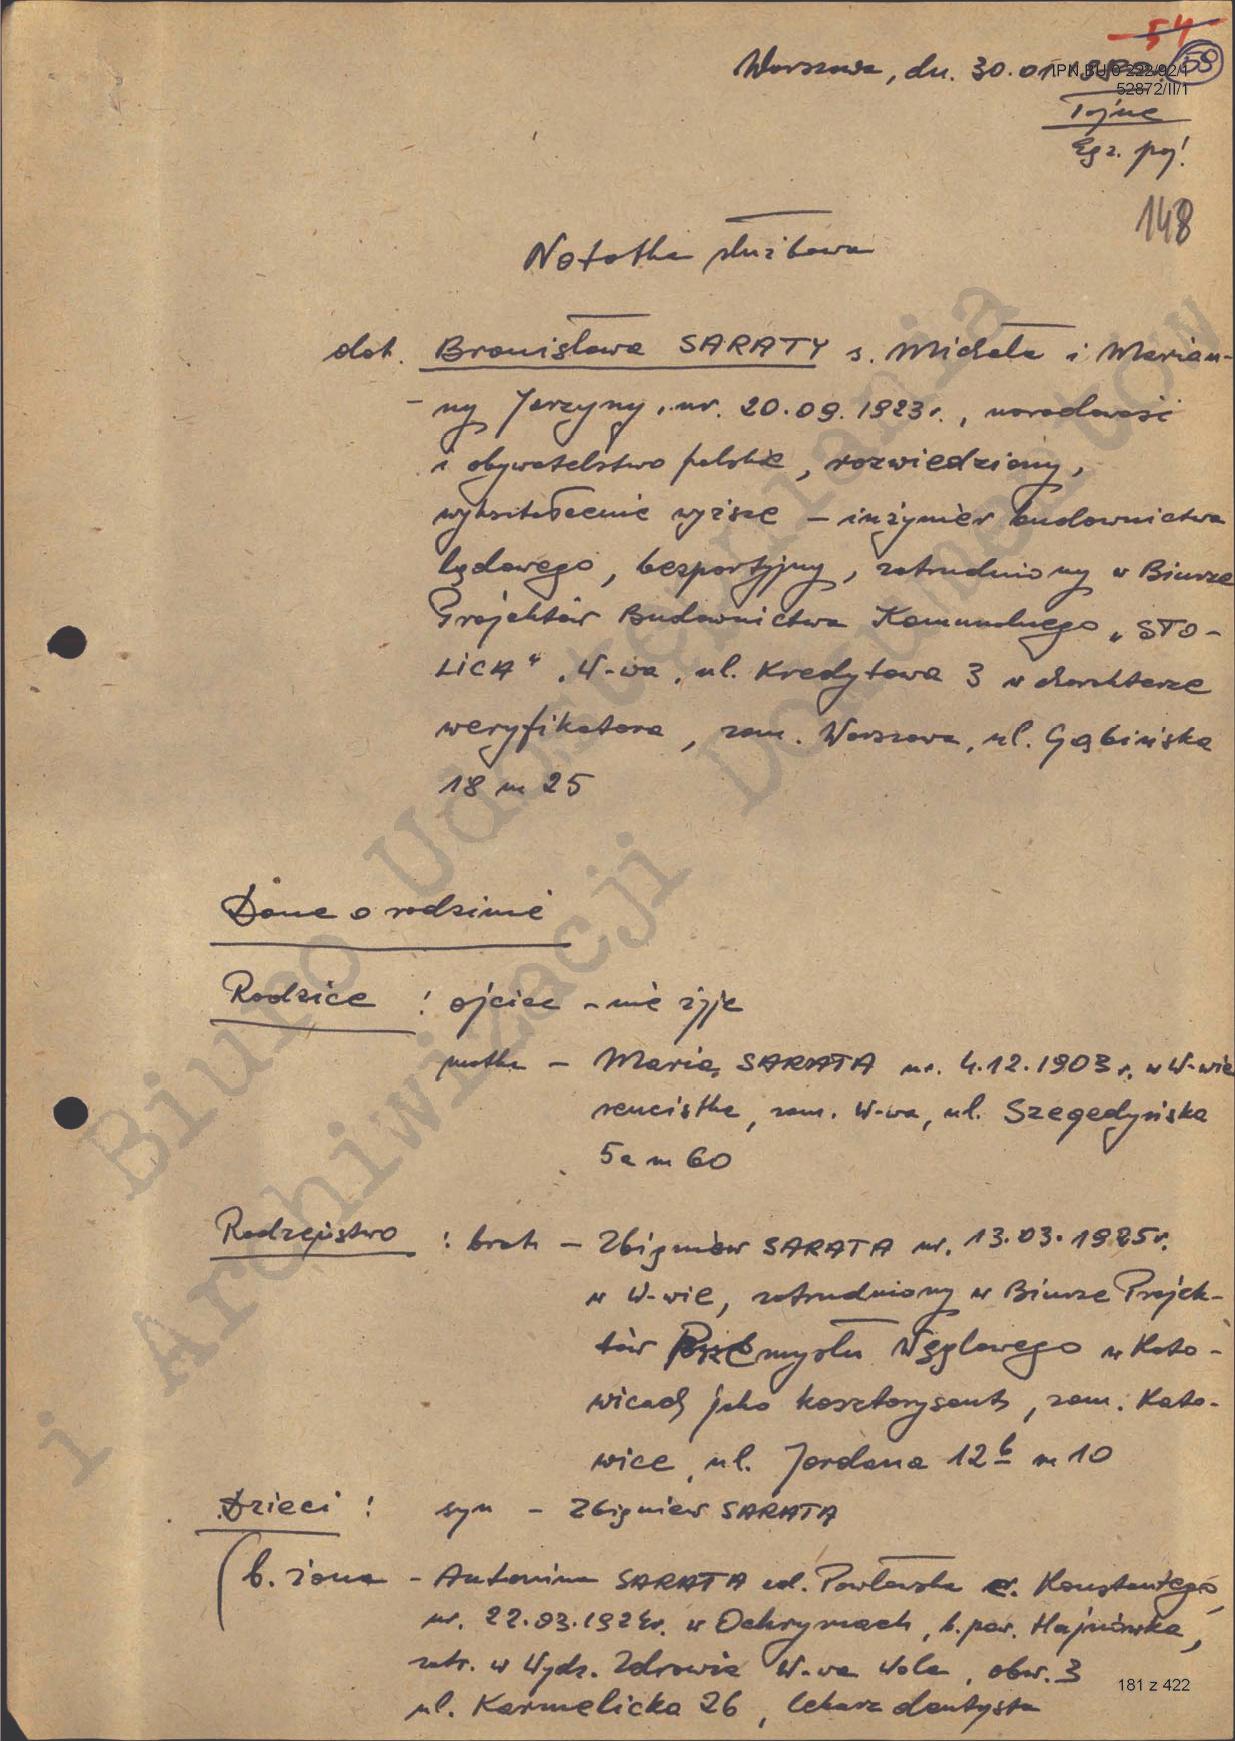 54
Warszawa, dn. 30.01
IPN BU 0 222/92/1
59
52872/II/1
Tajne
Egz. poj!
148
Notatka służbowa
dot. Bronisława SARATY s. Michała i Marian-
ny Jerzyny, ur. 20.09.1923 r., narodowość
i obywatelstwo polskie, rozwiedziony,
wykształcenie wyższe – inżynier budownictwa
lądowego, bezpartyjny, zatrudniony w Biurze
Projektów Budownictwa Komunalnego „STO-
LICA", W-wa, ul. Kredytowa 3 w charakterze
weryfikatora, zam. Warszawa, ul. Gąbińska
18 m 25
Dane o rodzinie
Rodzice : ojciec – nie żyje
matka – Maria SARATA ur. 4.12.1903 r. w W-wie
rencistka, zam. W-wa, ul. Szegedyńska
5a m 60
Rodzeństwo : brat – Zbigniew SARATA ur. 13.03.1925 r.
w W-wie, zatrudniony w Biurze Projek-
tów Przemysłu Węglowego w Kato-
wicach jako kosztorysant, zam. Kato-
wice, ul. Jordana 12b m 10
Dzieci : syn – Zbigniew SARATA
(b. żona – Antonina SARATA zd. Pawłowska c. Konstantego,
ur. 22.03.1924r. w Ochrymach, b. pow. Hajnówka,
zatr. w Wydz. Zdrowia W-wa Wola, obw. 3
ul. Karmelicka 26, lekarz dentysta
181 z 422
Biuro Udostępniania
i Archiwizacji Dokumentów